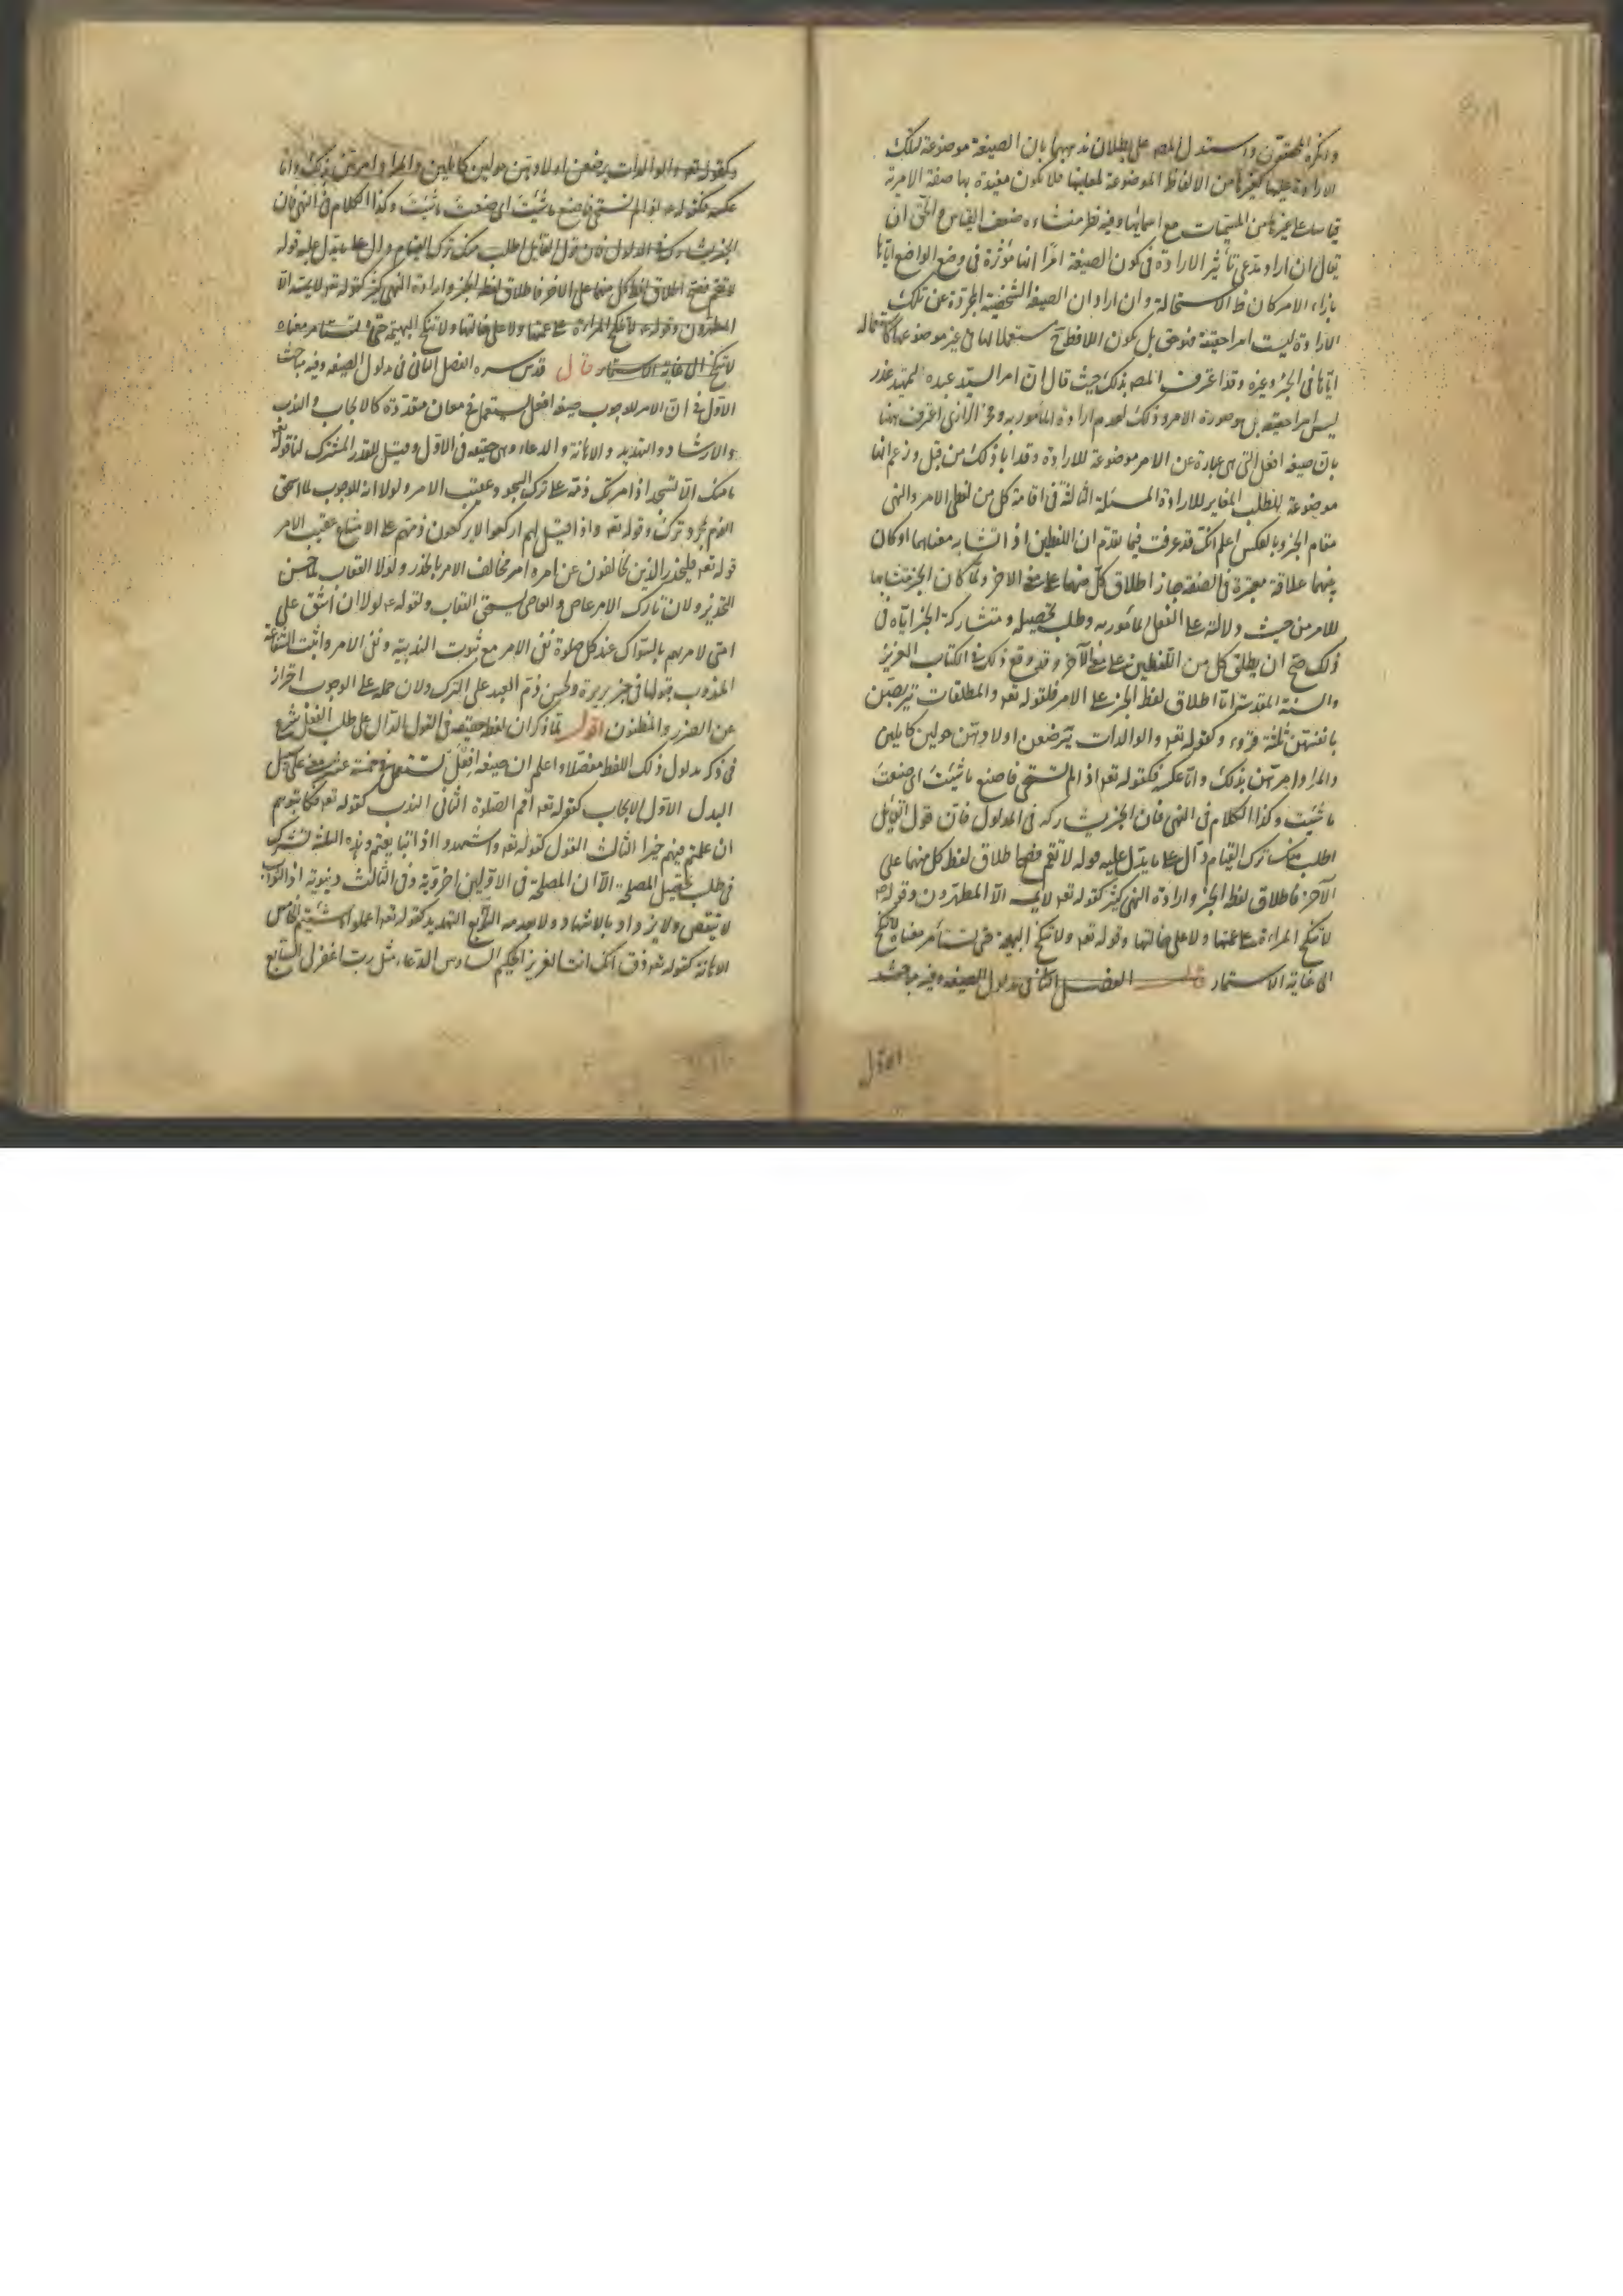 وانكره المحققون واستدل المص على بطلان مذهبهما بان الصيغة موضوعة لتلك
الارادة عليها كغيرها من الالفاظ الموضوعة لمعانيها فلا يكون مفيدة بها صفة الامرية
قياسا على غيرها من المسميات مع اسمائها وفيه نظر منشاءه ضعف القياس والحق ان
يقال ان اراد مدعى تأثير الارادة فى كون الصيغة امرا انها مؤثرة فى وضع الواضع اياها
بازاء الامر كان ظ الاستحالة وان اراد ان الصيغة الشخصية المجردة عن تلك
الارادة ليست امرا حقيقة فهو حق بل يكون اللافظ ح مستعملا لها فى غير موضوعها كاستعماله
اياها فى الخبر وغيره وقد اعترف المص بذلك حيث قال ان امر السيد عبده لتمهيد عذر
ليس امرا حقيقة بل هو صورة الامر وذلك لعدم ارادة المأمور به وفخر الرازى اعترف بهنا
بان صيغة افعل التى هى عبارة عن الامر موضوعة للارادة وقد ابا ذلك من قبل وزعم انها
موضوعة للطلب المغاير للارادة المسئلة الثالثة فى اقامة كل من لفظى الامر والنهى
مقام الخبر وبالعكس اعلم انك قد عرفت فيما تقدم ان اللفظين اذا تشابه معناهما او كان
بينهما علاقة معتبرة فى الصنعة جاز اطلاق كل منهما على معنى الاخر ولما كان الخبر متشابها
للامر من حيث دلالته على الفعل المأمور به وطلب تحصيله ومتشاركة الخبر اياه فى
ذلك صح ان يطلق كل من اللفظين على معنى الآخر وقد وقع ذلك فى الكتاب العزيز
والسنة المقدسة اما اطلاق لفظ الخبر على الامر فلقوله تعه والمطلقات يتربصن
بانفسهن ثلثة قروء وكقوله تعه والوالدات يرضعن اولادهن حولين كاملين
والمراد امرهن بذلك واما عكسه فكقوله تعه اذا لم تستحى فاصنع ما شئت اى صنعت
ما شئت وكذا الكلام فى النهى فان الخبر يشاركه فى المدلول فان قول القايل
اطلب منك ترك القيام دال على ما يدل عليه قوله لا تقم فصح اطلاق لفظ كل منهما على
الآخر فاطلاق لفظ الخبر وارادة النهى كثير كقوله تعه لا يمسه الا المطهرون وقوله
لا تنكح المراءة على عمتها ولا على خالتها وقوله تعه ولا تنكح اليتيمة حتى تستأمر معناه لا تنكح
الى غاية الاستيمار قال الفصل الثانى فى مدلول الصيغة وفيه مباحث
الاول
وكقوله تعه والوالدات يرضعن اولادهن حولين كاملين والمراد امرهن بذلك واما
عكسه فكقوله اذا لم تستحى فاصنع ما شئت اى صنعت ما شئت وكذا الكلام فى النهى فان
الخبر يشاركه فى المدلول فان قول القايل اطلب منك ترك القيام دال على ما يدل عليه قوله
لا تقم فصح اطلاق لفظ كل منهما على الاخر فاطلاق لفظ الخبر وارادة النهى كثير كقوله تعه لا يمسه الا
المطهرون وقوله لا تنكح المراءة على عمتها ولا على خالتها ولا تنكح اليتيمة حتى تستأمر معناه
لا تنكح الى غاية الاستيمار قال قدس سره الفصل الثانى فى مدلول الصيغة وفيه مباحث
الاول فى ان الامر للوجوب صيغة افعل يستعمل فى معان متعددة كالايجاب والندب
والارشاد والتهديد والاهانة والدعاء وهى حقيقة فى الاول وقيل للقدر المشترك لنا قوله تعه
ما منعك الا تسجد اذ امرتك ذمه على ترك السجود عقيب الامر ولولا انه للوجوب لما استحق
الذم بمجرد تركه وقوله تعه واذا قيل لهم اركعوا لا يركعون ذمهم على الامتناع عقيب الامر
قوله تعه فليحذر الذين يخالفون عن امره امر مخالف الامر بالحذر ولولا العقاب لما حسن
التحذير ولان تارك الامر عاص والعاصى يستحق العقاب ولقوله عه لولا ان اشق على
امتى لامرتهم بالسواك عند كل صلوة نفى الامر مع ثبوت الندبية ونفى الامر واثبت الشفاعة
المندوب بقولها فى خبر بريرة ولحسن ذم العبد على الترك ولان حمله على الوجوب احتراز
عن الضرر والمظنون اقول لما ذكر ان لفظ حقيقة فى القول الدال على طلب الفعل شرع
فى ذكر مدلول ذلك اللفظ مفصلا واعلم ان صيغة افعل تستعمل فى خمسة عشر معنى على سبيل
البدل الاول الايجاب كقوله تعه اقم الصلوة الثانى الندب كقوله تعه فكاتبوهم
ان علمتم فيهم خيرا الثالث القول كقوله تعه واشهدوا اذا تبايعتم وهذه الثلثة تشترك
فى طلب تحصيل المصلحة الا ان المصلحة فى الاولين اخروية وفى الثالث دنيوية اذ الثواب
لا ينقص ولا يزداد بالاشهاد ولا بعدمه الرابع التهديد كقوله تعه اعملوا ما شئتم الخامس
الاهانة كقوله تعه ذق انك انت العزيز الحكيم السادس الدعاء مثل رب اغفر لى السابع